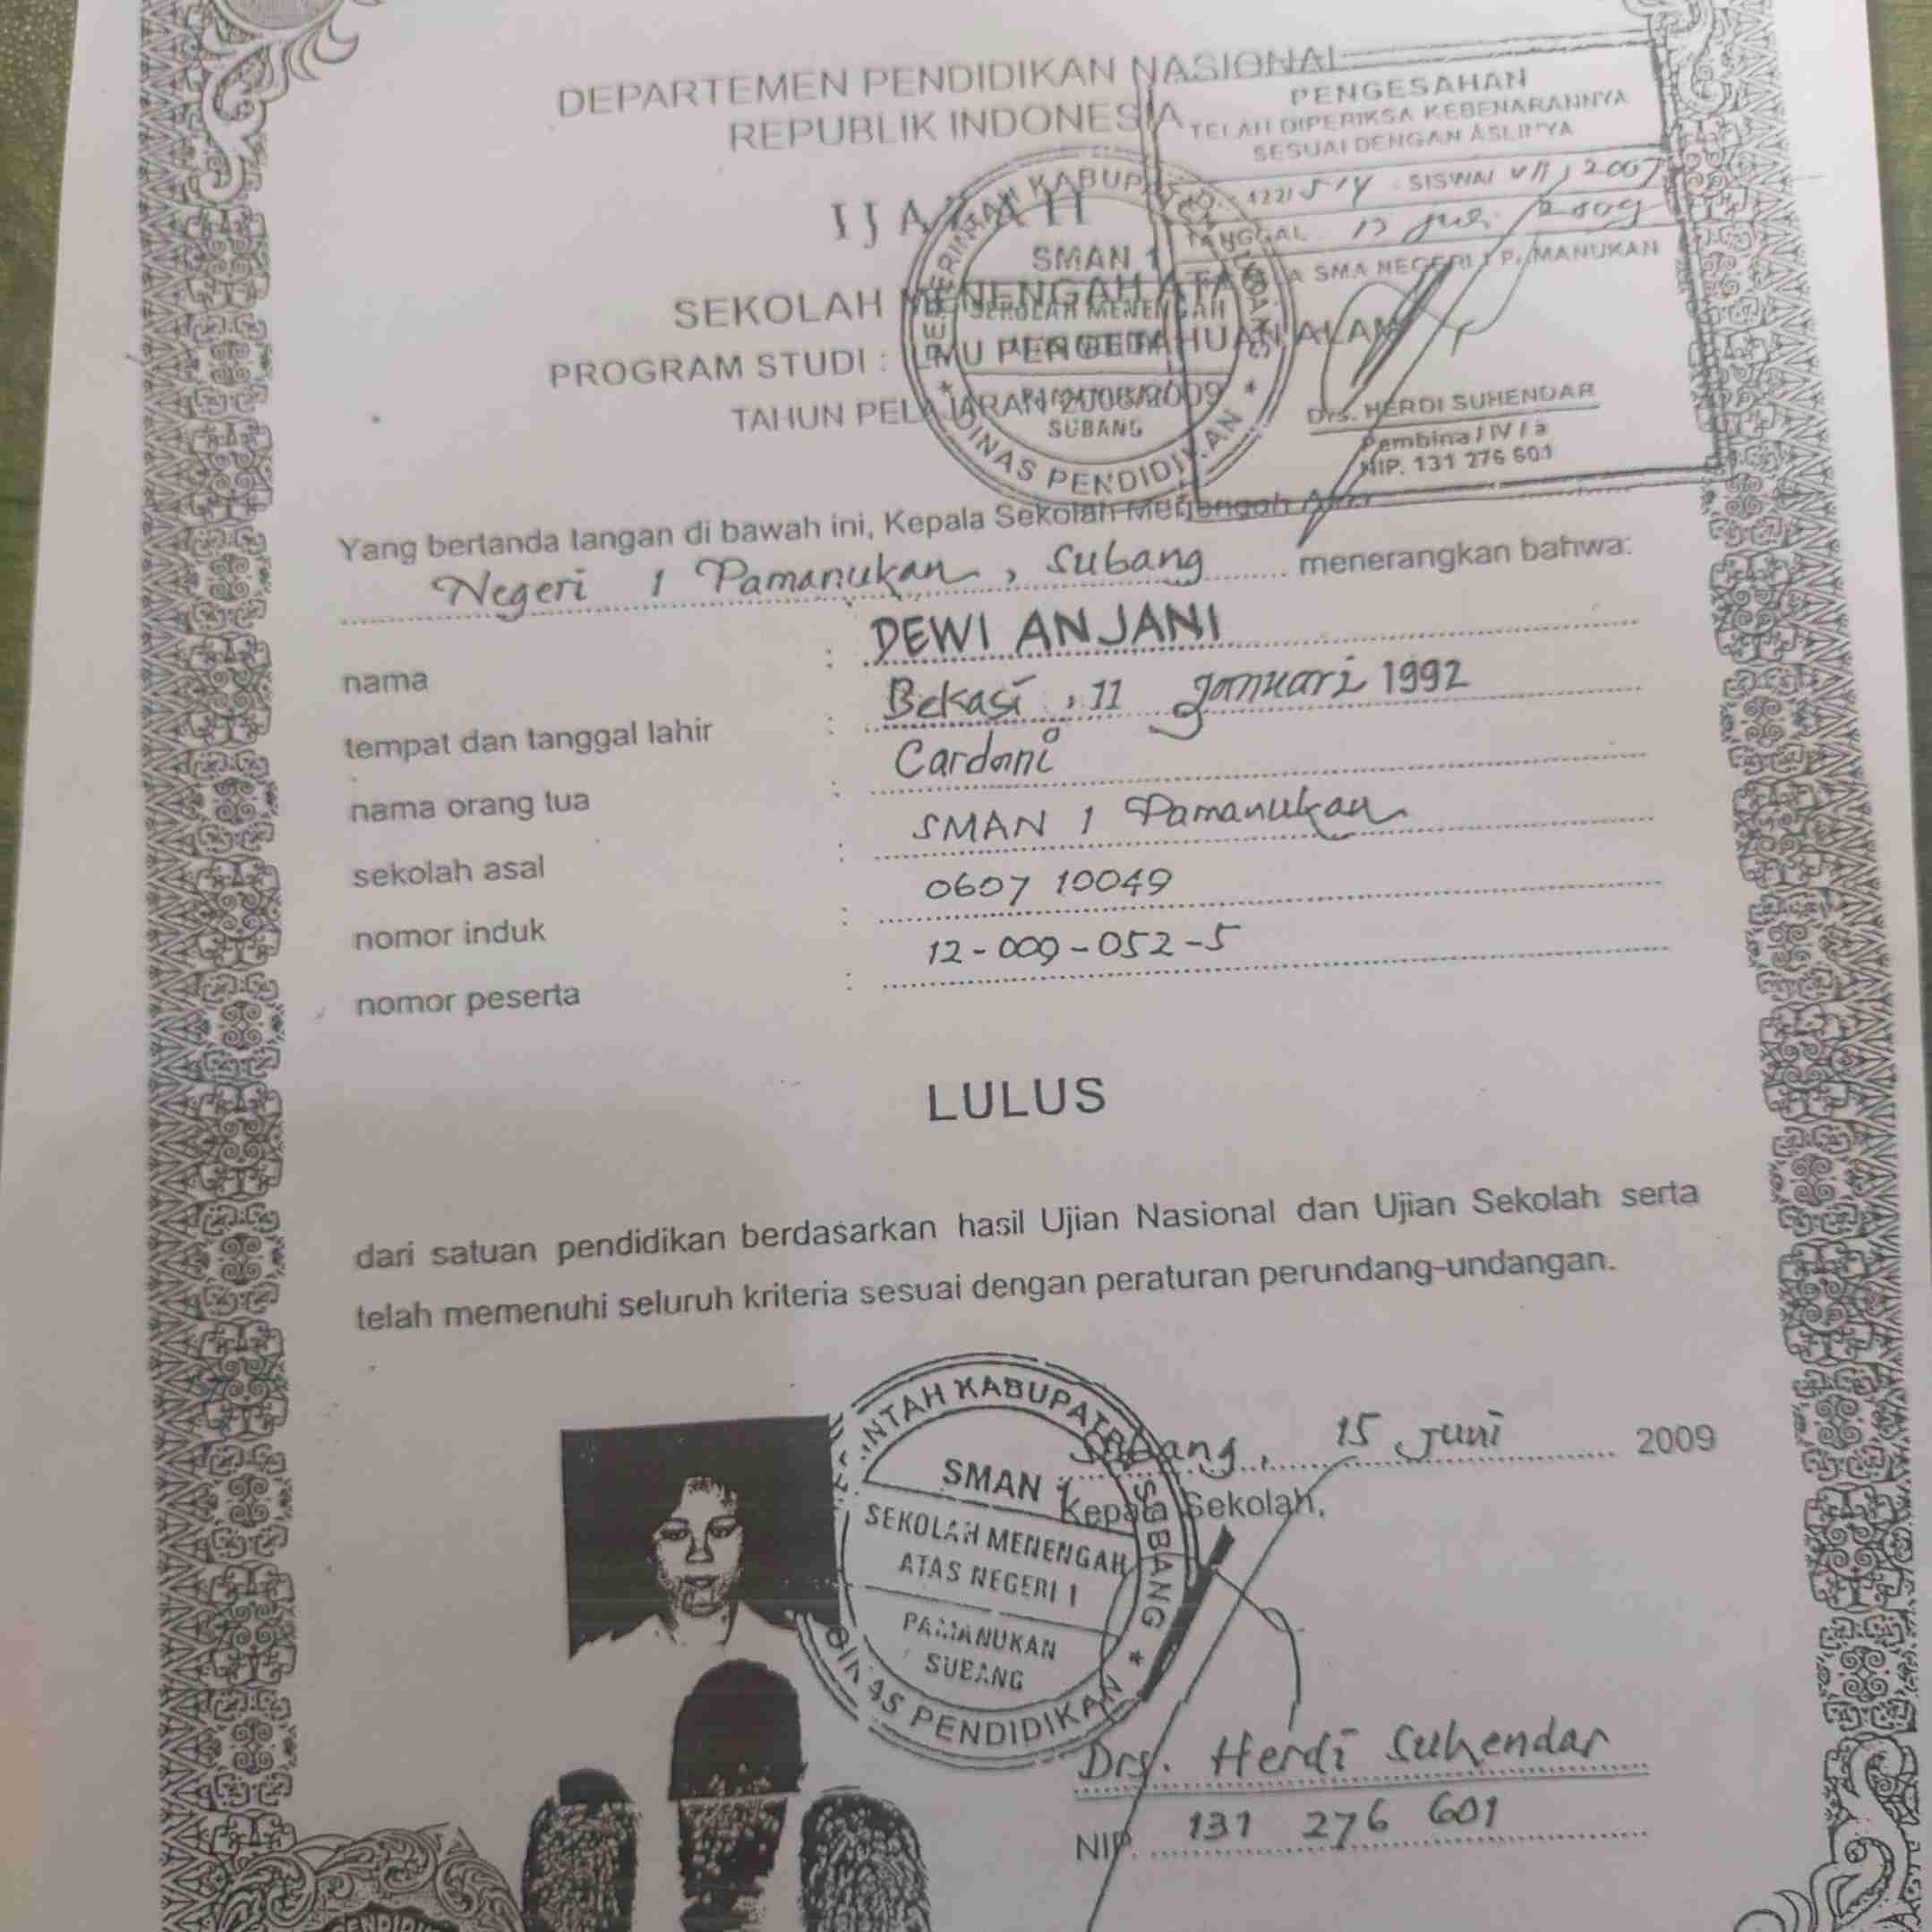 DEPARTEMEN PENDIDIKAN NASIONAL
REPUBLIK INDONESIA
PENGESAHAN
TELAH DIPERIKSA KEBENARANNYA
SESUAI DENGAN ASLINYA
SISWA/ VII / 2009
TANGGAL
SMA NEGERI 1 PAMANUKAN
Drs. HERDI SUHENDAR
Pembina / IV / a
NIP. 131 276 601
IJAZAH
SEKOLAH MENENGAH ATAS
PROGRAM STUDI : ILMU PENGETAHUAN ALAM
TAHUN PELAJARAN 2008/2009
PEMERINTAH KABUPATEN SUBANG
SMAN 1
SEKOLAH MENENGAH
SUBANG
* DINAS PENDIDIKAN *
Yang bertanda tangan di bawah ini, Kepala Sekolah Menengah Atas
Negeri 1 Pamanukan, Subang menerangkan bahwa:
nama : DEWI ANJANI
tempat dan tanggal lahir : Bekasi, 11 Januari 1992
nama orang tua : Cardani
sekolah asal : SMAN 1 Pamanukan
nomor induk : 0607 10049
nomor peserta : 12-009-052-5
LULUS
dari satuan pendidikan berdasarkan hasil Ujian Nasional dan Ujian Sekolah serta
telah memenuhi seluruh kriteria sesuai dengan peraturan perundang-undangan.
Subang, 15 Juni 2009
Kepala Sekolah,
SMAN 1
SEKOLAH MENENGAH
ATAS NEGERI 1
PAMANUKAN
SUBANG
DINAS PENDIDIKAN *
Drs. Herdi Suhendar
NIP. 131 276 601